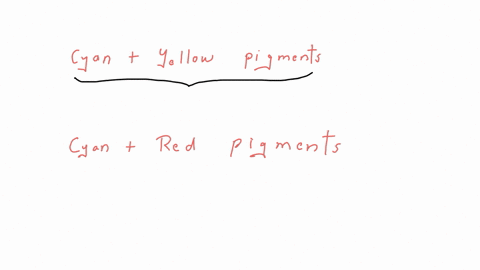 Cyan + Yellow pigments
Cyan + Red pigments